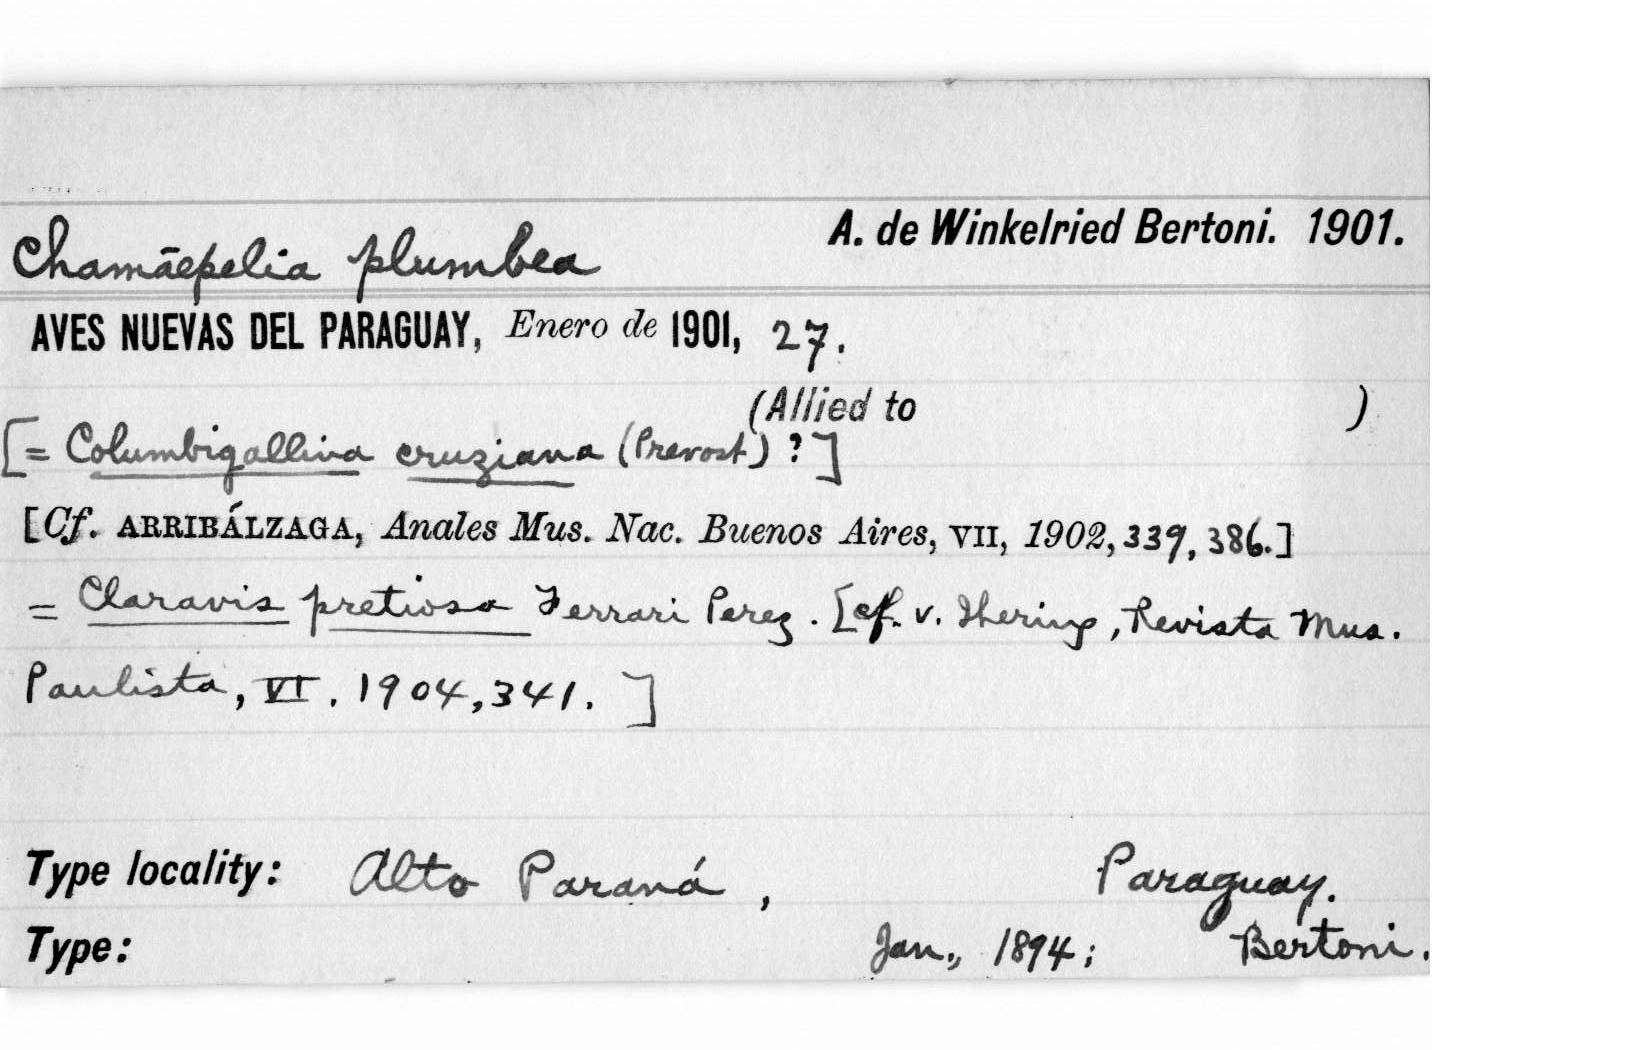 Chamāepelia plumbea A. de Winkelried Bertoni. 1901.
AVES NUEVAS DEL PARAGUAY, Enero de 1901, 27.
(Allied to )
[= Columbigallina cruziana (Prevost) ?]
[Cf. ARRIBÁLZAGA, Anales Mus. Nac. Buenos Aires, VII, 1902, 339, 386.]
= Claravis pretiosa Ferrari Perez. [cf. v. Ihering, Revista Mus.
Paulista, VI. 1904, 341. ]
Type locality: Alto Paraná , Paraguay.
Type: Jan., 1894; Bertoni.